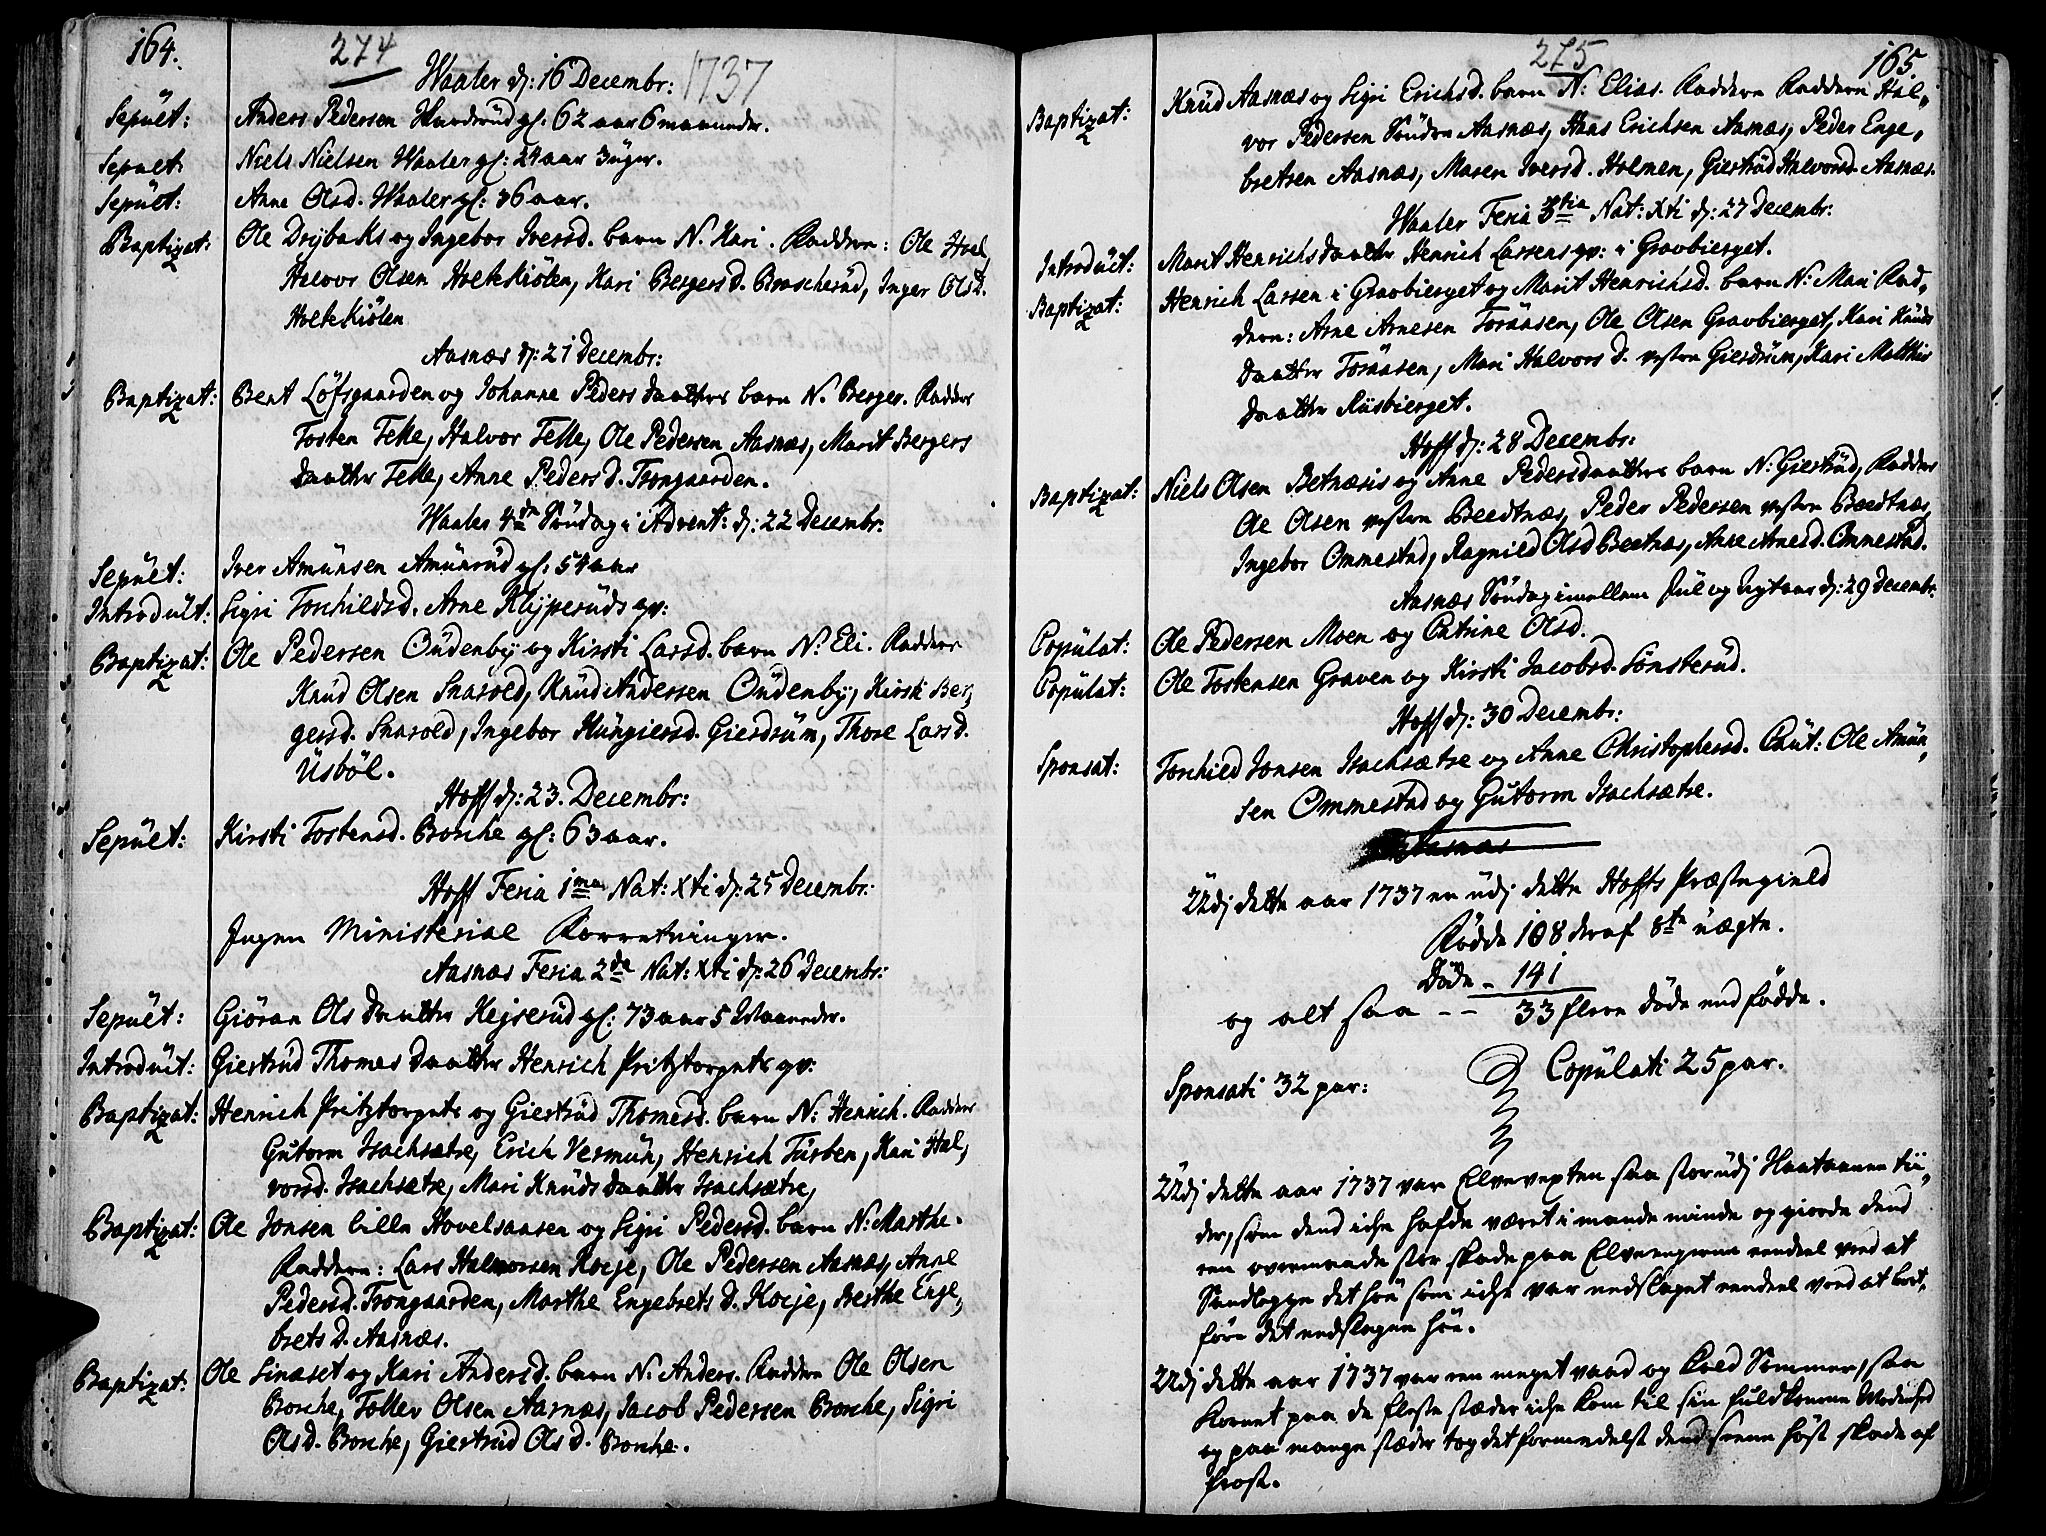 164.
274
Waaler d: 16 Decembr: 1737
Sepult: Anders Pedersen Hurderud gl: 62 aar 6 maaneder.
Sepult: Niels Nielsen Waaler gl: 24 aar 3 uger.
Sepult: Anne Olsd. Waaler gl: 36 aar.
Baptizat: Ole Drybaks og Ingebor Iversd. barn N. Kari. Faddere: Ole Hval,
Halvor Olsen Holtekiölen, Kari Bergersd. Brascherud, Inger Olsd.
Holtekiölen
Aasnæs d: 21 Decembr:
Baptizat: Bent Löfsgaarden og Johanne Peders daatters barn N. Berger. Fadder
Tosten Telle, Halvor Telle, Ole Pedersen Aasnæs, Marit Bergers
daatter Telle, Anne Pedersd. Trongaarden.
Waaler 4de Söndag i Advent: d: 22 Decembr:
Sepult: Iver Amunsen Amunrud gl: 54 aar
Introduct: Sigri Torchildsd. Arne Klyperuds qv:
Baptizat: Ole Pedersen Oudenby og Kirsti Larsd. barn N: Eli. Fadder
Knud Olsen Snarold, Knud Andersen Oudenby, Kirsti Ber,
gersd. Snarold, Ingebor Hungiersd. Gierdrum, Thore Larsd.
Usböl.
Hoff d: 23. Decembr:
Sepult: Kirsti Tostensd. Borche gl: 63 aar.
Hoff Feria 1ma Nat: Xti d: 25 Decembr:
Ingen Ministerial Forretninger.
Aasnæs Feria 2da Nat: Xti d: 26 Decembr:
Sepult: Giöran Ols daatter Kejserud gl: 73 aar 5 Maaneder.
Introduct: Giertrud Thomas daatter Henrich Pritztorgets qv:
Baptizat: Henrich Pritztorgets og Giertrud Thomesd. barn N: Henrich. Fadder
Gutorm Isachsætre, Erich Vermun, Henrich Turben, Kari Hal,
vorsd. Isachsætre, Mari Knuds daatter Isachsætre,
Baptizat: Ole Jonsen lille Hovelsaasen og Sigri Pedersd. barn N: Marthe.
Faddere: Lars Halvorsen Koeje, Ole Pedersen Aasnæs, Anne
Pedersd. Trongaarden, Marthe Engebrets d. Koeje, Berthe Enge,
brets d. Aasnæs.
Baptizat: Ole Linæset og Kari Andersd. barn N. Anders. Faddere Ole Olsen
Borche, Tollev Olsen Aasnæs, Jacob Pedersen Borche, Sigri
Olsd. Borche, Giertrud Ols d. Borche.
275
165
Baptizat: Knud Aasnæs og Sigri Erichsd. barn N: Elias. Faddere Hal,
vor Pedersen Söndre Aasnæs, Hans Erichsen Aasnæs, Peder Enge,
bretsen Aasnæs, Maren Iversd. Holmen, Giertrud Halvorsd. Aasnæs.
Waaler Feria 3tia Nat: Xti d: 27 Decembr:
Introduct: Marit Henrichsdaatter Henrich Larsens qv: i Gravbierget.
Baptizat: Henrich Larsen i Gravbierget og Marit Henrichsd. barn N: Mari Fad,
dere: Arne Arnesen Toraasen, Ole Olsen Gravbierget, Kari Knuds
daatter Toraasen, Mari Halvors d. vestre Gierdrum, Kari Matthis
daatter Riisbierget.
Hoff d: 28 Decembr:
Baptizat: Niels Olsen Betnæsis og Anne Pedersdaatters barn N: Giertrud, Fadder
Ole Olsen vestre Breedtnæs, Peder Pedersen vestre Breedtnæs,
Ingebor Ommestad, Ragnild Olsd Beetnæs, Anne Arnesd. Ommestad.
Aasnæs Söndag imellem Juul og Nytaar d: 29 Decembr:
Copulat: Ole Pedersen Moen og Catrine Olsd.
Copulat: Ole Tostensen Graven og Kirsti Jacobsd. Sönsterud.
Hoff d: 30 Decembr:
Sponsat: Torchild Jonsen Isachsætre og Anne Christophersd. Caut: Ole Amun,
sen Ommestad og Gutorm Isachsætre.
Aasnæs
Udj dette aar 1737 ere udj dette Hoffs Præstegield
Födde 108 deraf 8te uægte.
Döde - 141
og alt saa - - 33 flere döde end födde.
Sponsati 32 par:
Copulati 25 par.
Udj dette aar 1737 var Elvevexten saa stor udj Haataanne tii,
der, som dend iche hafde været i mande minde og giorde dend
een overmaade stor skade paa Elveengerne eendeel ved at
Sandlegge det höe som iche var nedslaget eendeel ved at bort,
före det nedslagen höe.
Udj dette aar 1737 var een meget vaad og Kold Sommer, saa
Kornet paa de fleste stæder iche kom til sin fuldkomne Modenhed
og paa mange stæder tog det formedelst dend seene höst skade af
frost.